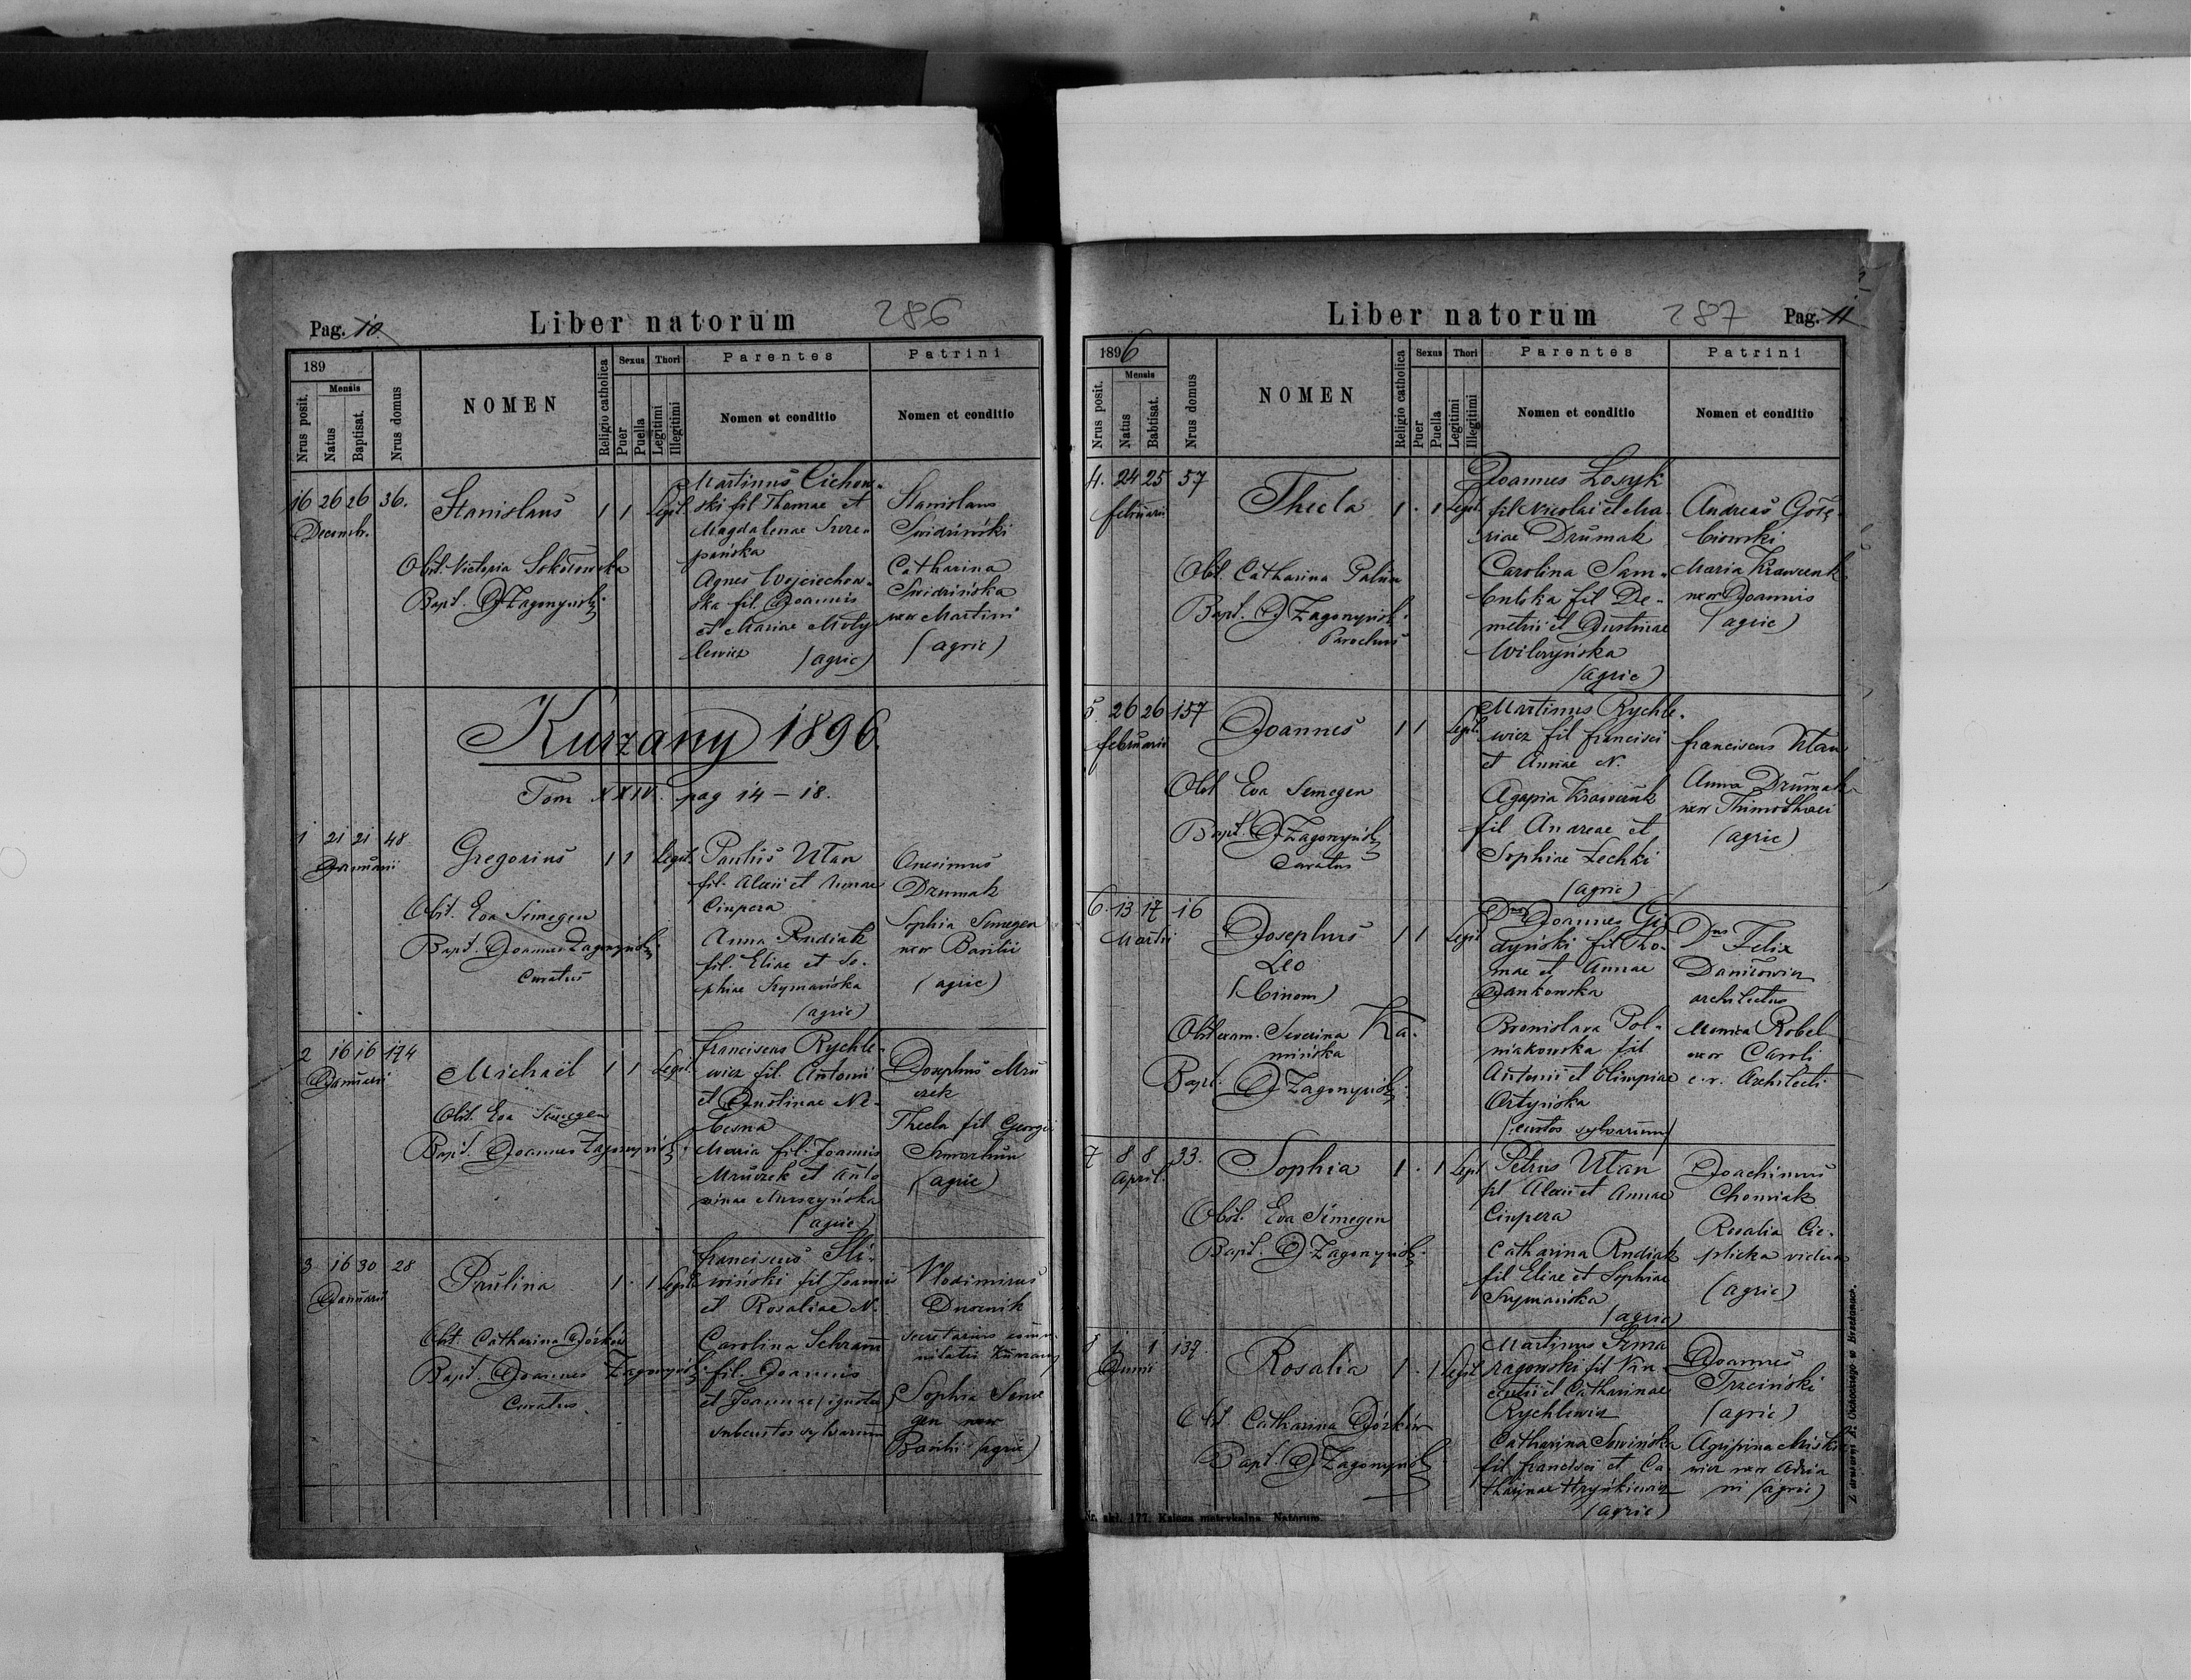 Pag. 10
Liber natorum
286
189
Nrus posit.
Mensis
Natus
Baptisat.
Nrus domus
NOMEN
Religio catholica
Sexus
Puer
Puella
Thori
Legitimi
Illegitimi
Parentes
Nomen et conditio
Patrini
Nomen et conditio
16 26 26 36.
Decembr.
Stanislaus
1 1 Legit.
Obst. Victoria Sokołowska
Bapt. J Zagonyński
Martinus Cichow-
ski fil Thomae et
Magdalenae Szcze-
pańska
Agnes Wojciechow-
ska fil. Joannis
et Mariae Moty-
lewicz (agric)
Stanislaus
Swidziński
Catharina
Swidzińska
uxor Martini
(agric)
Kurzany 1896.
Tom XXIV. pag 14 - 18.
1 21 21 48
Januarii
Gregorius
1 1 Legit.
Obst. Eva Semegen
Bapt. Joannes Zagonyński
Curatus
Paulus Utan
fil. Alexii et Annae
Ciupera
Anna Rudiak
fil. Eliae et So-
phiae Szymańska
(agric)
Onesimus
Drumak
Sophia Semegen
uxor Basilii
(agric)
2 16 16 174
Januarii
Michaël
1 1 Legit.
Obst. Eva Semegen
Bapt. Joannes Zagonyński
Franciscus Rychle-
wicz fil. Antonii
et Justinae Ne-
besna
Maria fil. Joannis
Mruczek et Anto-
ninae Murszyńska
(agric)
Josephus Mru
czek
Thecla fil Georgii
(agric)
3 16 30 28
Januarii
Paulina
1 . 1 Legit
Obst. Catharina Dórków
Bapt. Joannes Zagonyński
Curatus
Franciscus Śli-
wiński fil Joannis
et Rosaliae N.
Carolina Schramm
fil. Joannis
et Joannae (ignota)
subcustos sylvarum
Vlodimirus
Dwornik
secretarius commu-
nitatis Kurzany
Sophia Seme
gen uxor
Basilii (agric)
Liber natorum
287
Pag. 11
1896
Nrus posit.
Mensis
Natus
Babtisat.
Nrus domus
NOMEN
Religio catholica
Sexus
Puer
Puella
Thori
Legitimi
Illegitimi
Parentes
Nomen et conditio
Patrini
Nomen et conditio
4. 24 25 57
Februarii
Thecla
1 . 1 Legit.
Obst. Catharina
Bapt. J Zagonyński
Parochus
Joannes Losyk
fil Nicolai et Ma-
riae Drumak
Carolina Sam-
bulska fil De-
metrii et Justinae
Wilczyńska
(agric)
Andreas Gołę-
biowski
Maria Krawczuk
uxor Joannis
(agric)
5. 26 26 157
Februarii
Joannes
1 1 Legit.
Obst Eva Semegen
Bapt. J Zagonyński
Curatus
Martinus Rychle-
wicz fil Francisci
et Annae N.
Agapia Krawczuk
fil Andreae et
Sophiae Zechki
(agric)
Franciscus Utan
Anna Drumak
uxor Thimothaei
(agric)
6. 13 17 16
Martii
Josephus
Leo
(binom)
1 1 Legit
Obst exam. Severina Ka-
mińska
Bapt. J Zagonyński
Dnus Joannes Gi-
dyński fil Tho-
mae et Annae
Jankowska
Bronislava Pol-
niakowska fil
Antonii et Olimpiae
Artyńska
(custos sylvarum)
Dnus Felix
Daniłowicz
architectus
Monica Robel
uxor Caroli
c. r. Architecti
7 8 8 33.
April.
Sophia
1 . 1 Legit
Obst. Eva Semegen
Bapt. J Zagonyński
Petrus Utan
fil Alexii et Annae
Ciupera
Catharina Rudiak
fil Eliae et Sophiae
Szymańska
(agric)
Joachimus
Chomiak
Rosalia Cie-
plicka vidua
(agric)
8 1 1 137.
Junii
Rosalia
1 . 1 Legit
Obst Catharina Dórków
Bapt. J Zagonyński
Martinus Szma
ragowski fil Vin-
centii et Catharinae
Rychlewicz
Catharina Sewińska
fil Francisci et Ca-
tharinae Hryńkiewicz
(agric)
Joannes
Trzciński
(agric)
Agripina
uxor Adria
ni (agric)
Nr. skł. 177. Księga metrykalna. Natorum.
Z drukarni
w Brzeżanach.